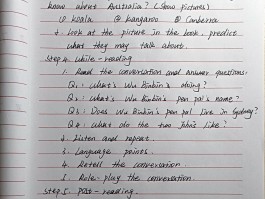 know about Australia? (Show pictures)
① Koala ② kangaroo ③ Canberra
2. Look at the picture in the book, predict
what they may talk about.
Step 4. While-reading
1. Read the conversation and answer questions.
Q1: What's Wu Binbin's doing?
Q2: What's Wu Binbin's pen pal's name?
Q3: Does Wu Binbin's pen pal live in Sydney?
Q4: What do the two John's like?
2. Listen and repeat.
3. Language points.
4. Retell the conversation.
5. Role-play the conversation.
Step 5. Post-reading.